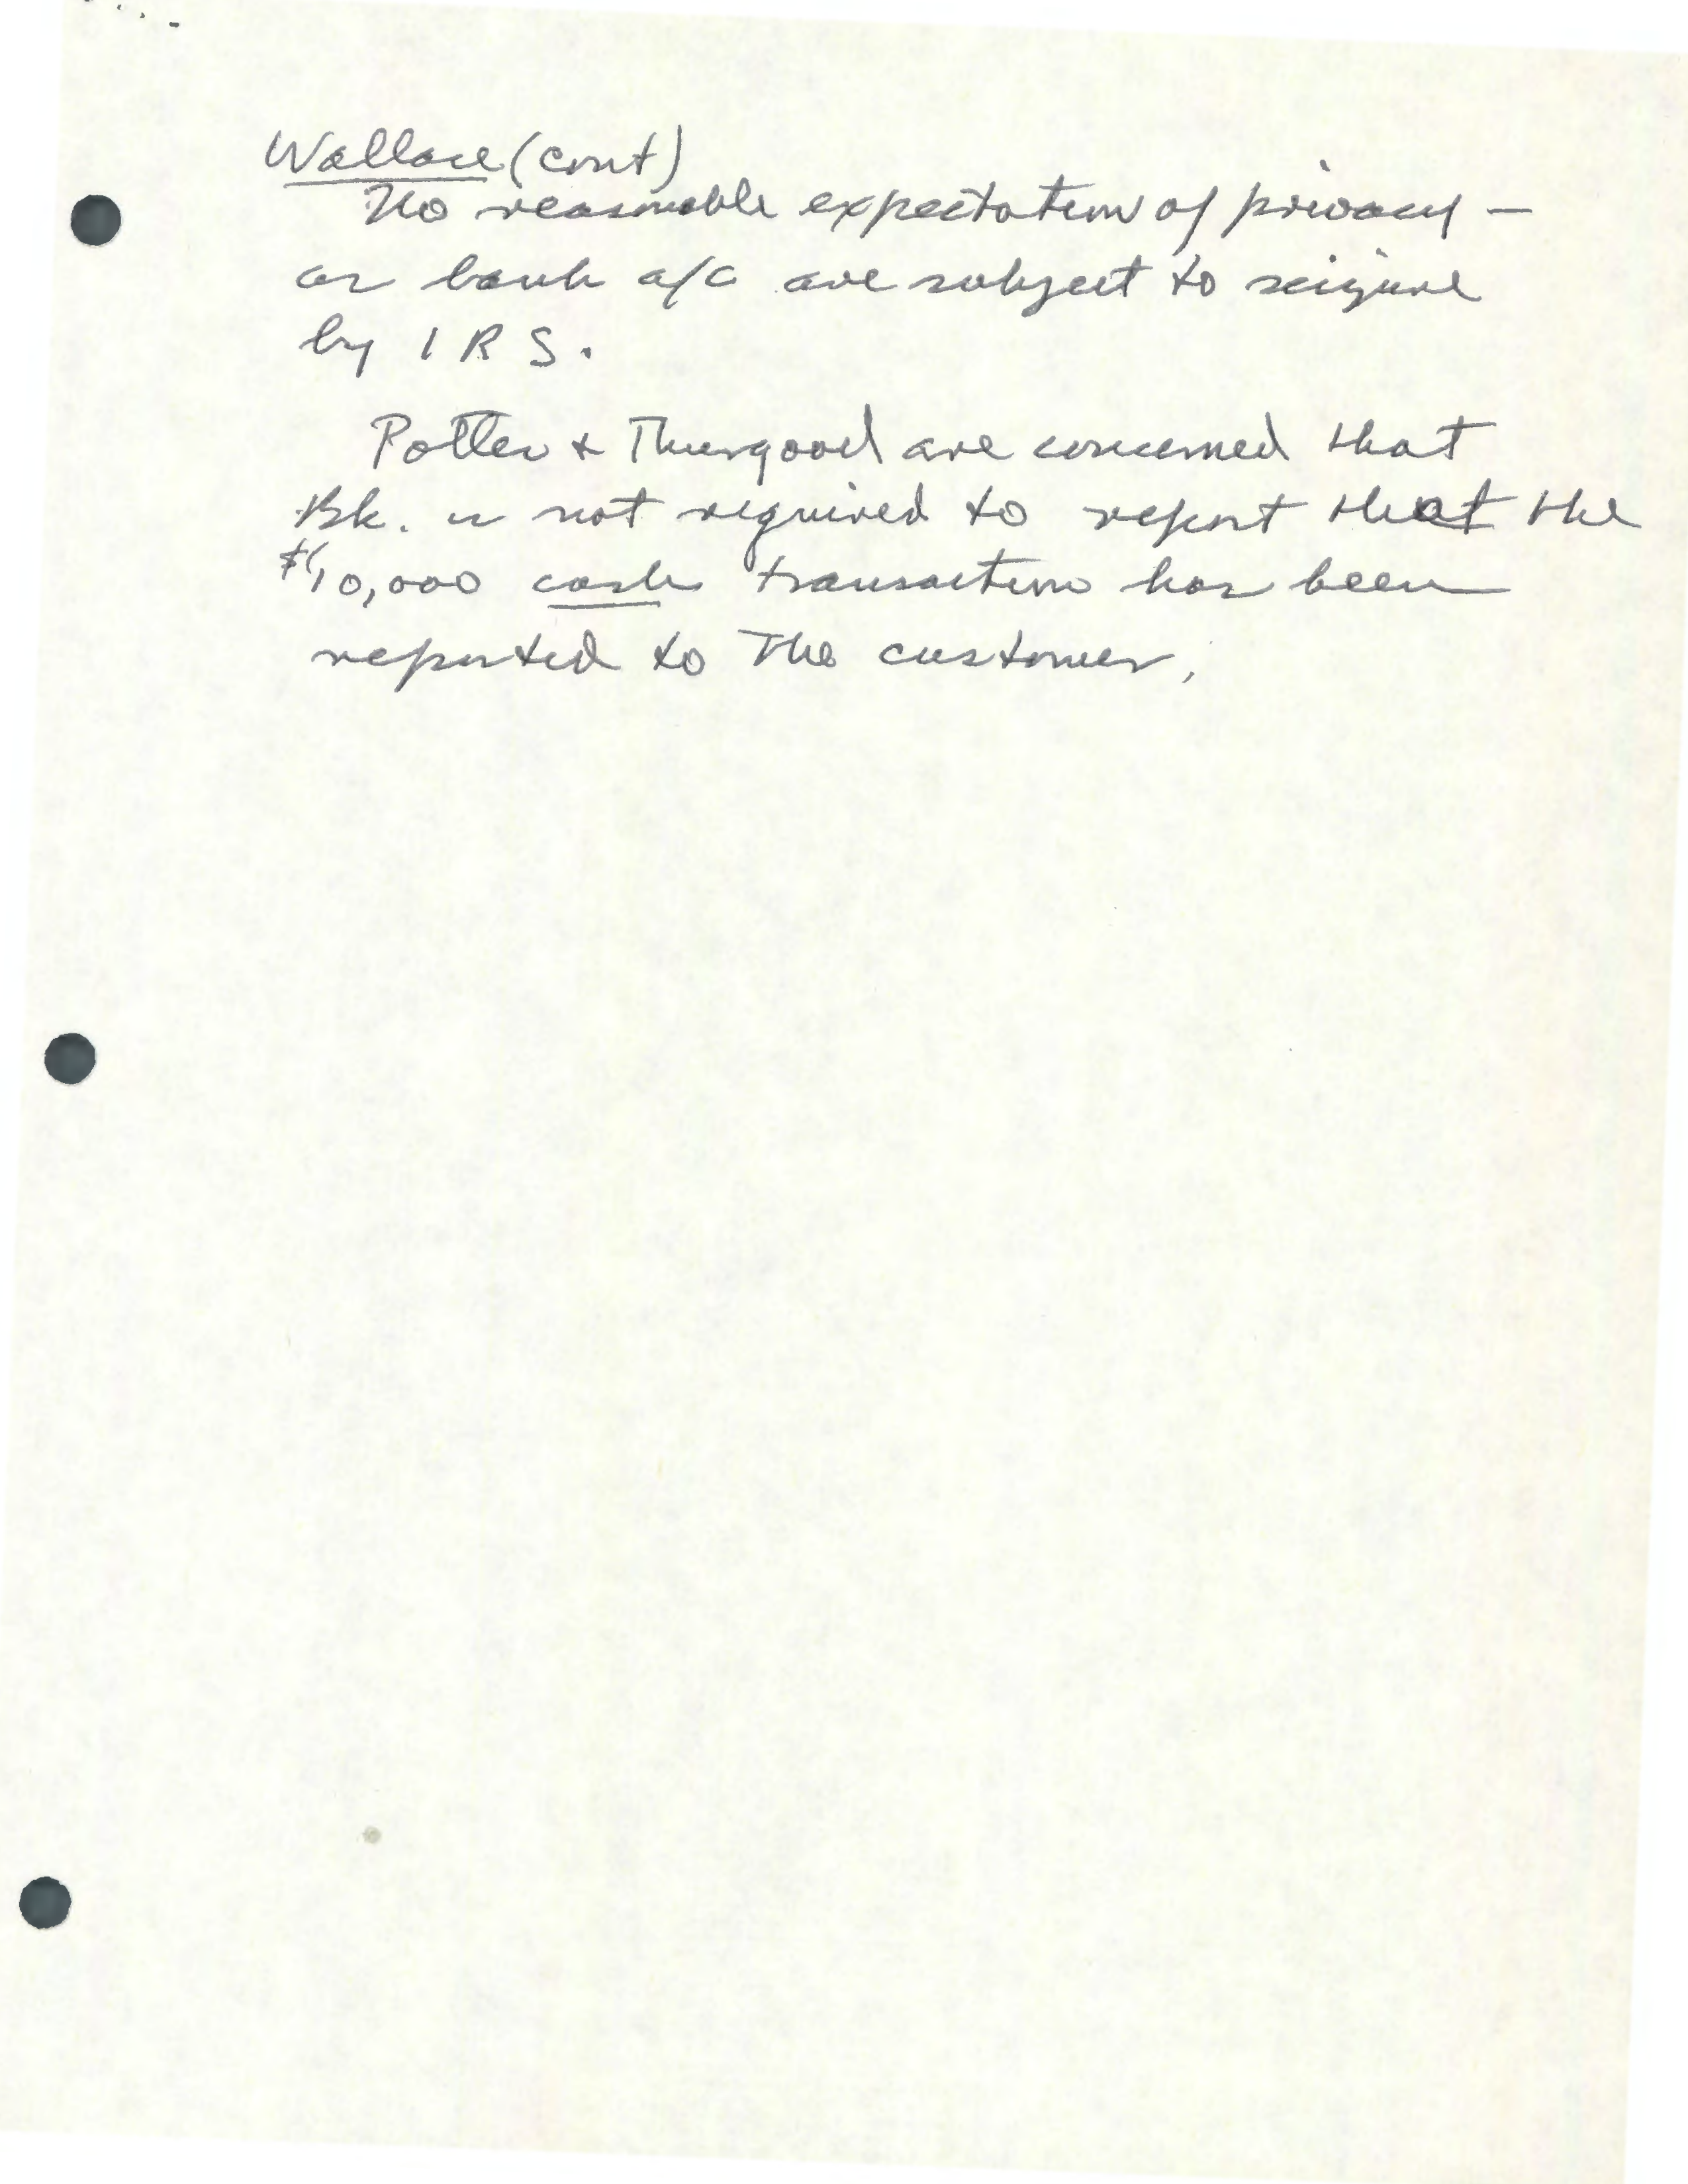 Wallace (cont)
No reasonable expectation of privacy –
as bank a/c are subject to seizure
by I R S.
Potter & Thurgood are concerned that
Bk. is not required to report that the
$10,000 cash transaction has been
reported to the customer.